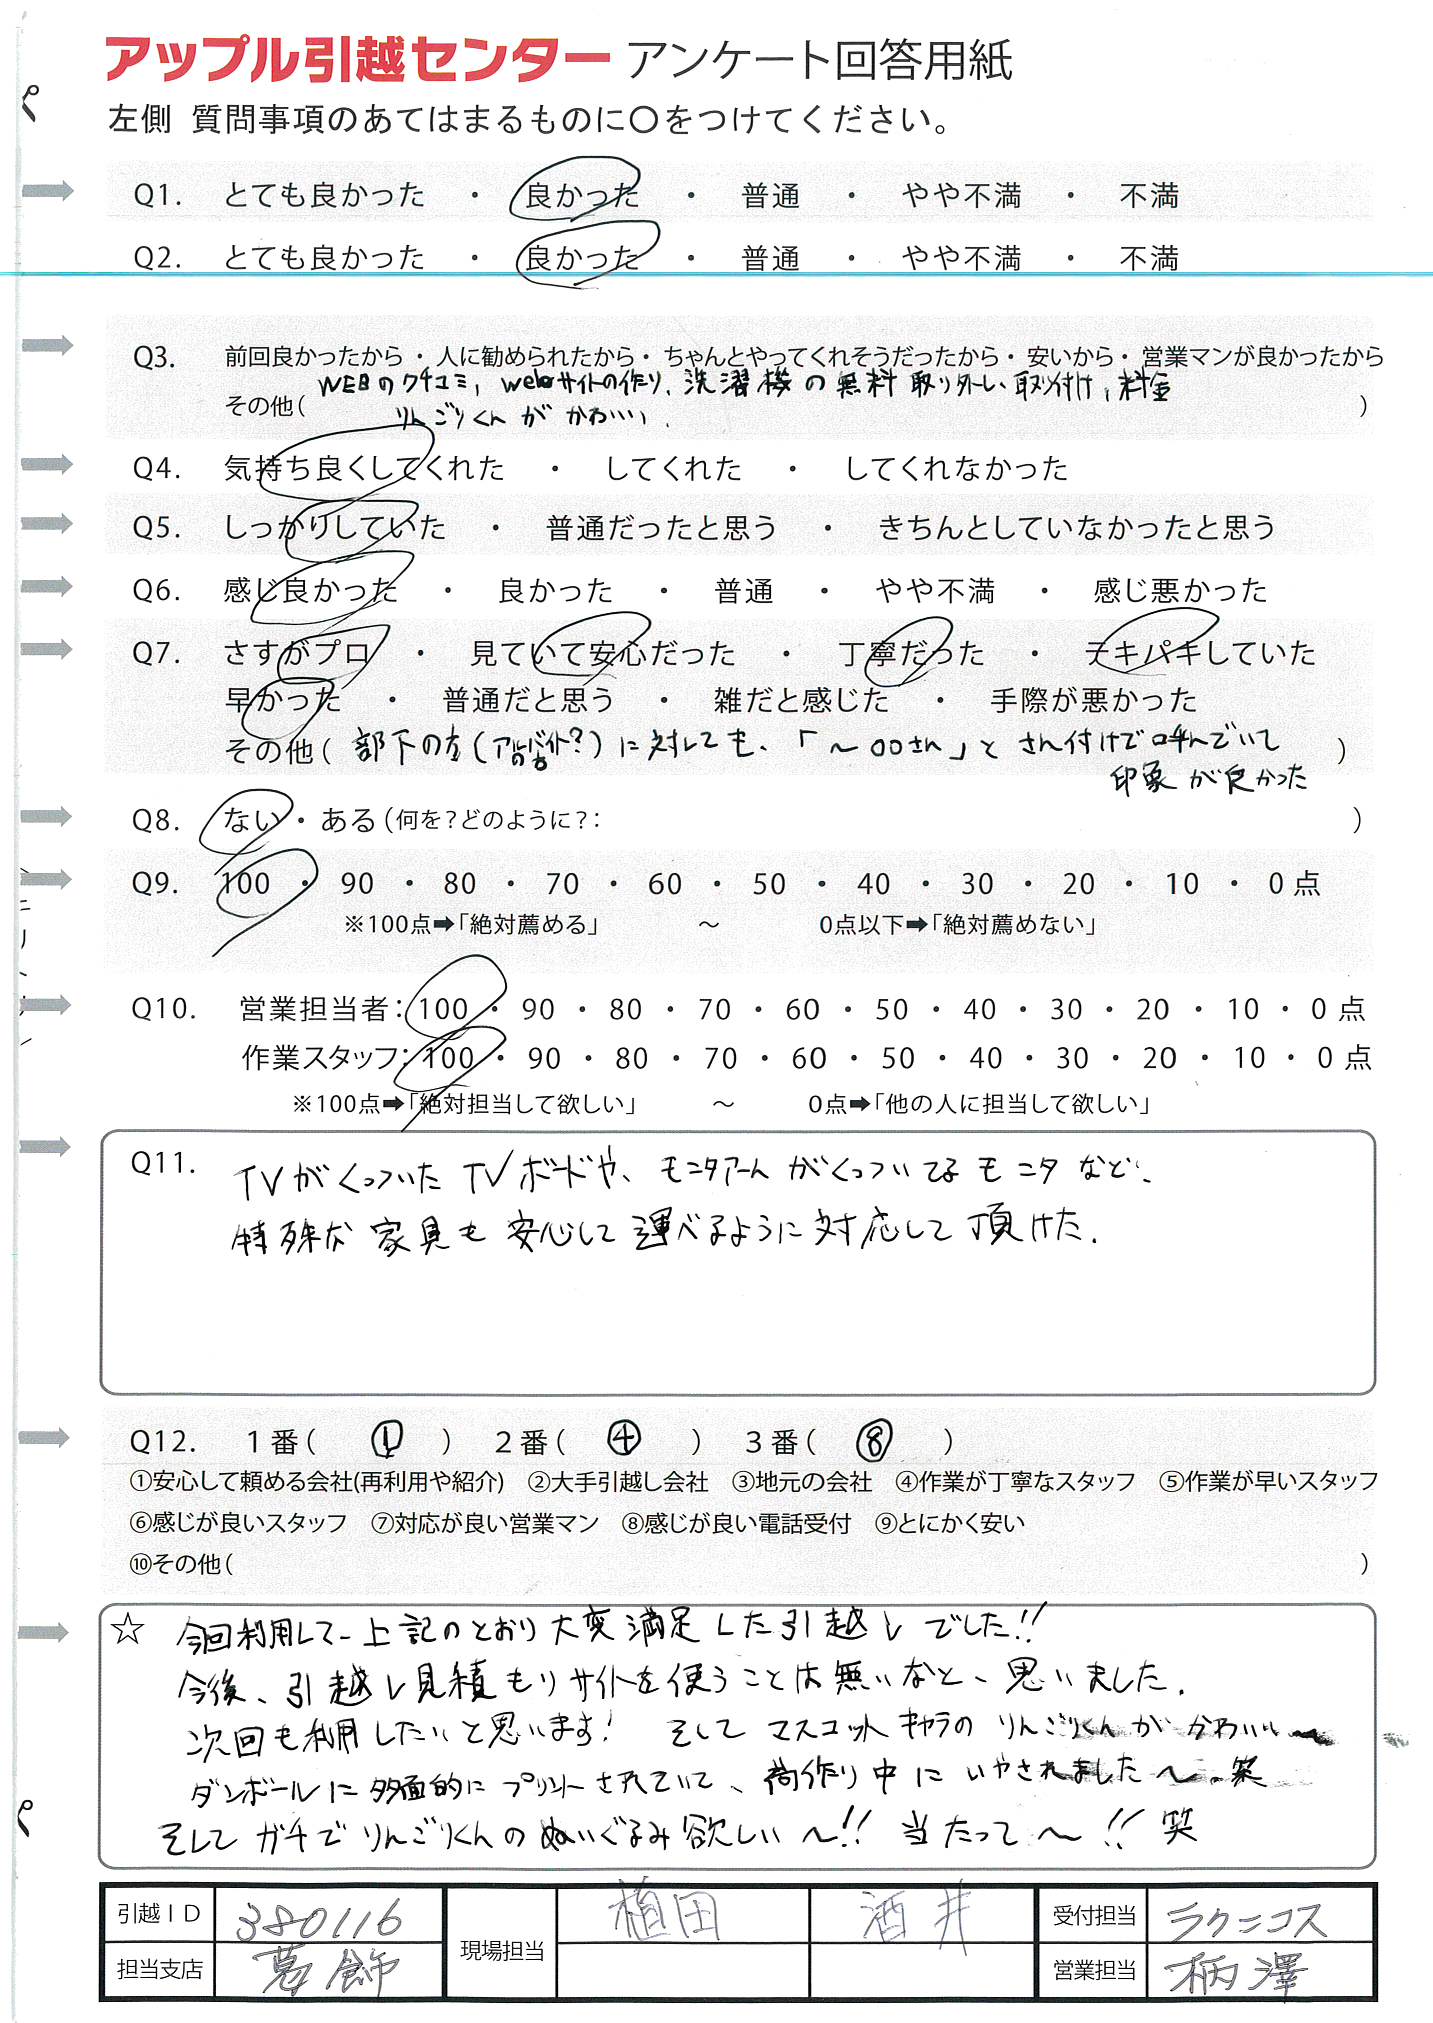 アップル引越センター アンケート回答用紙
左側 質問事項のあてはまるものに〇をつけてください。
Q1. とても良かった ・ 良かった ・ 普通 ・ やや不満 ・ 不満
Q2. とても良かった ・ 良かった ・ 普通 ・ やや不満 ・ 不満
Q3. 前回良かったから ・ 人に勧められたから ・ ちゃんとやってくれそうだったから ・ 安いから ・ 営業マンが良かったから
WEBのクチコミ, webサイトの作り、洗濯機の無料取り外し、取り付け, 料金
その他( )
りんごりくんがかわいい、
Q4. 気持ち良くしてくれた ・ してくれた ・ してくれなかった
Q5. しっかりしていた ・ 普通だったと思う ・ きちんとしていなかったと思う
Q6. 感じ良かった ・ 良かった ・ 普通 ・ やや不満 ・ 感じ悪かった
Q7. さすがプロ ・ 見ていて安心だった ・ 丁寧だった ・ テキパキしていた
早かった ・ 普通だと思う ・ 雑だと感じた ・ 手際が悪かった
その他( 部下の方(アルバイトの方?)に対しても、「〜〇〇さん」とさん付けで呼んでいて )
印象が良かった
Q8. ない ・ ある (何を?どのように?: )
Q9. 100 ・ 90 ・ 80 ・ 70 ・ 60 ・ 50 ・ 40 ・ 30 ・ 20 ・ 10 ・ 0 点
※100点➡「絶対薦める」 〜 0点以下➡「絶対薦めない」
Q10. 営業担当者: 100 ・ 90 ・ 80 ・ 70 ・ 60 ・ 50 ・ 40 ・ 30 ・ 20 ・ 10 ・ 0 点
作業スタッフ: 100 ・ 90 ・ 80 ・ 70 ・ 60 ・ 50 ・ 40 ・ 30 ・ 20 ・ 10 ・ 0 点
※100点➡「絶対担当して欲しい」 〜 0点➡「他の人に担当して欲しい」
Q11. TVがくっついたTVボードや、モニタアームがくっついてるモニタなど、
特殊な家具も安心して運べるように対応して頂けた.
Q12. 1番( ① ) 2番( ④ ) 3番( ⑧ )
①安心して頼める会社(再利用や紹介) ②大手引越し会社 ③地元の会社 ④作業が丁寧なスタッフ ⑤作業が早いスタッフ
⑥感じが良いスタッフ ⑦対応が良い営業マン ⑧感じが良い電話受付 ⑨とにかく安い
⑩その他( )
☆ 今回利用して、上記のとおり大変満足した引越しでした!!
今後、引越し見積もりサイトを使うことは無いなと、思いました.
次回も利用したいと思います! そしてマスコットキャラのりんごりくんがかわいい〜
ダンボールに多面的にプリントされていて、荷作り中にいやされました〜.笑
そしてガチでりんごりくんのぬいぐるみ欲しい〜!! 当たって〜!! 笑
引越ID 380116 現場担当 植田 酒井 受付担当 ラクニコス
担当支店 葛飾 営業担当 柄澤